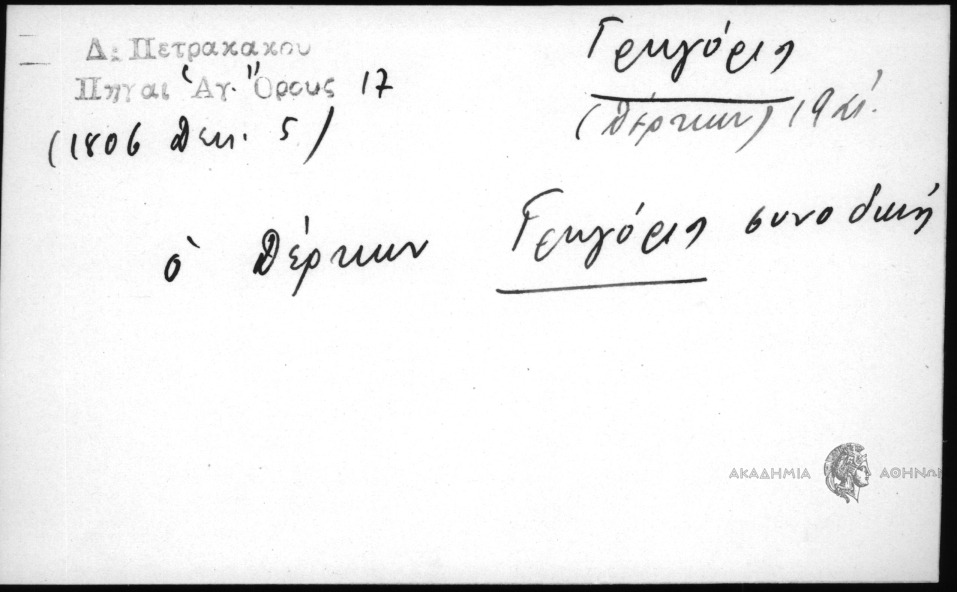 Δ. Πετρακακου
Πηγαι Ἁγ. Ὄρους 17
(1806 Δεκ. 5)
Γρηγόριος
(Δέρκων) 19 αἰ.
ὁ Δέρκων Γρηγόριος συνοδικῇ
ΑΚΑΔΗΜΙΑ ΑΘΗΝΩΝ